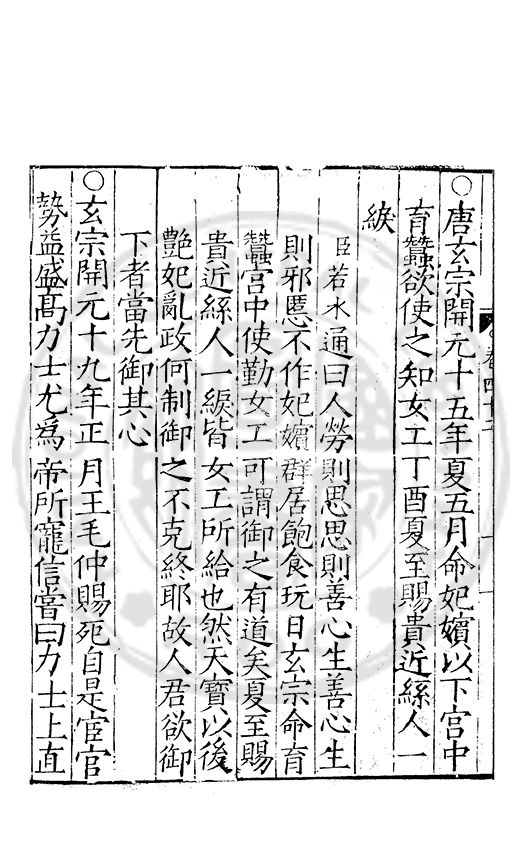 ○唐玄宗開元十五年夏五月命妃嬪以下宮中
育蠶欲使之知女工丁酉夏至賜貴近絲人一
綟
臣若水通曰人勞則思思則善心生善心生
則邪慝不作妃嬪群居飽食玩日玄宗命育
蠶宮中使勤女工可謂御之有道矣夏至賜
貴近絲人一綟皆女工所給也然天寶以後
艶妃亂政何制御之不克終耶故人君欲御
下者當先御其心
○玄宗開元十九年正月王毛仲賜死自是宦官
勢益盛高力士尤為帝所寵信嘗曰力士上直